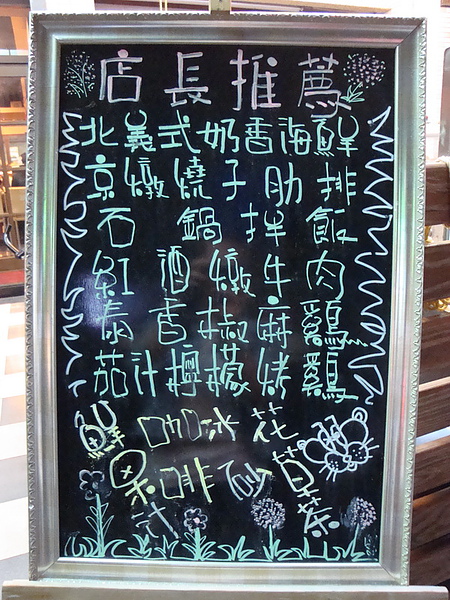 店長推薦
北義式奶香海鮮
京燉燒子肋排
石鍋拌飯
紅酒燉牛肉
泰香椒麻雞
茄汁檸檬烤雞
鮮果汁
咖啡
冰砂
花草茶